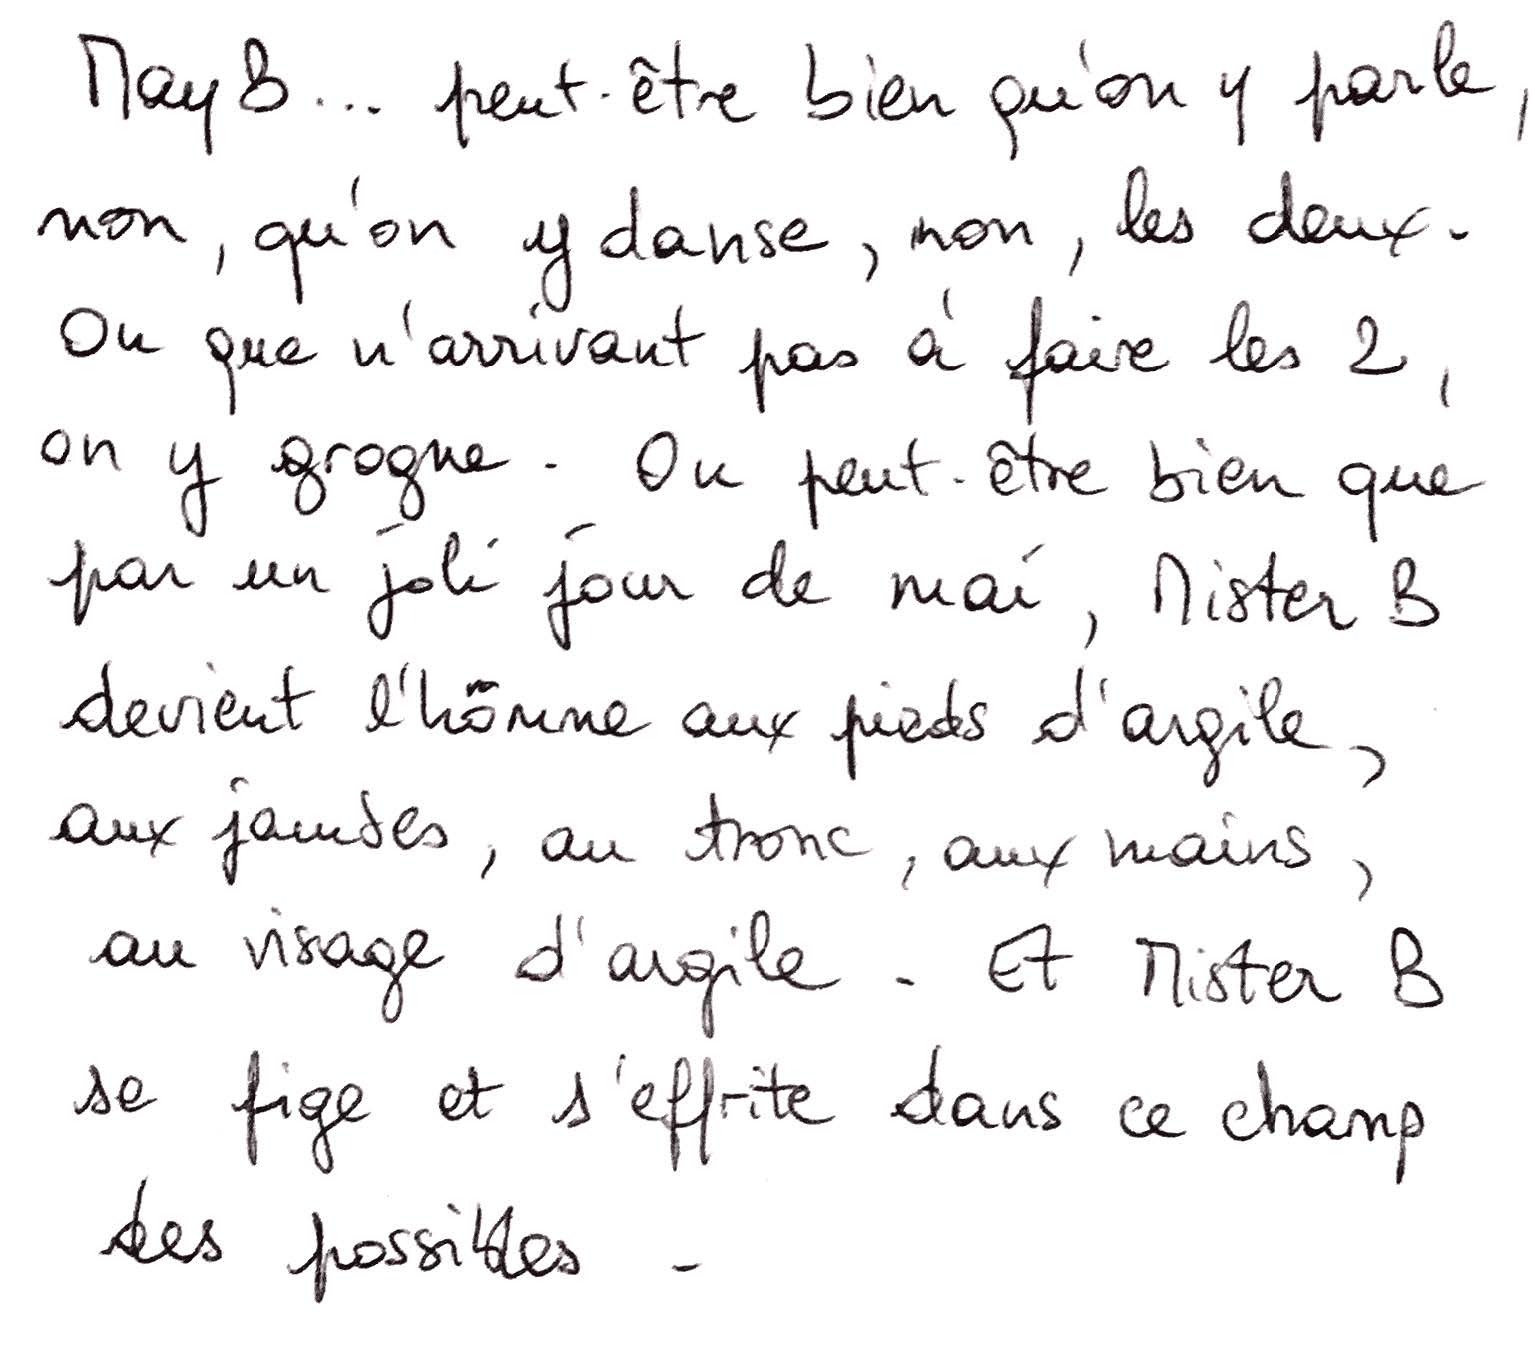 May B... peut-être bien qu'on y parle,
non, qu'on y danse, non, les deux.
Ou que n'arrivant pas à faire les 2,
on y grogne. Ou peut-être bien que
par un joli jour de mai, Mister B
devient l'hômme aux pieds d'argile,
aux jambes, au tronc, aux mains,
au visage d'argile. Et Mister B
se fige et s'effrite dans ce champ
des possibles.